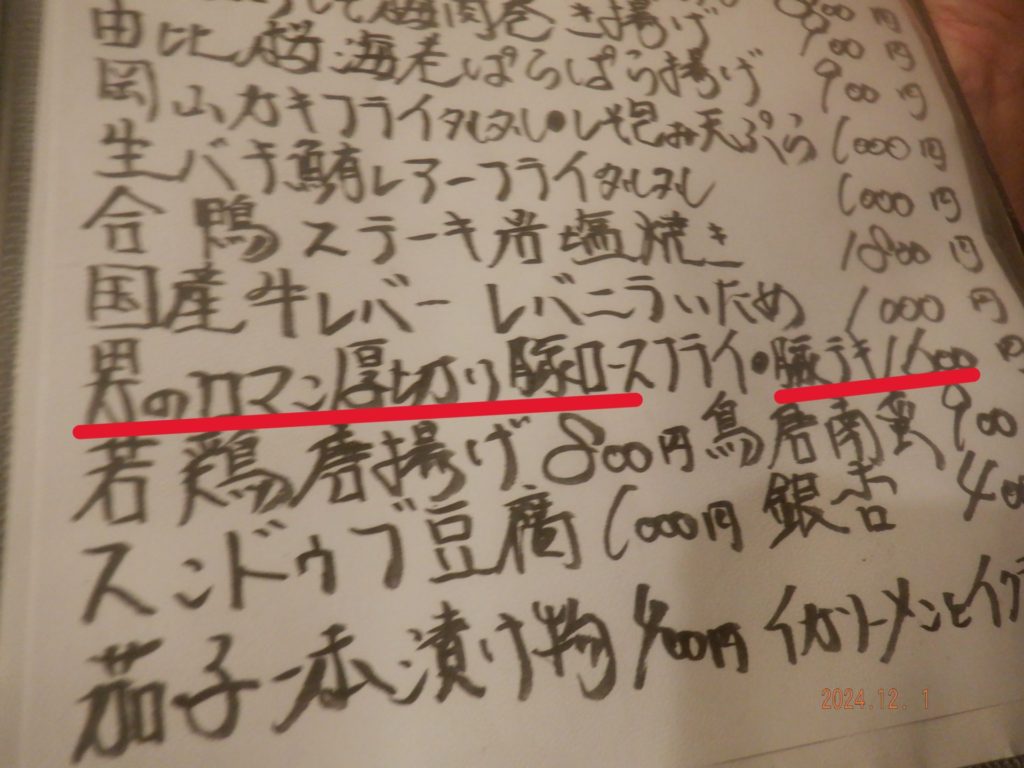 して桜海老巻き揚げ 800円
由比桜海老ぱらぱら揚げ 900円
岡山カキフライタルタル・レモン天ぷら 900円
生バチ鮪レアーフライタルタル 1000円
合鴨ステーキ岩塩焼き 1000円
国産牛レバー レバニラいため 1800円
男のロマン厚切り豚ロースフライ・豚テキ 1600円
若鶏唐揚げ 800円 鳥唐南蛮 900
スンドゥブ豆腐 1000円 銀杏 400
茄子一本漬け物 400円 イカソーメンとイクラ
2024.12. 1